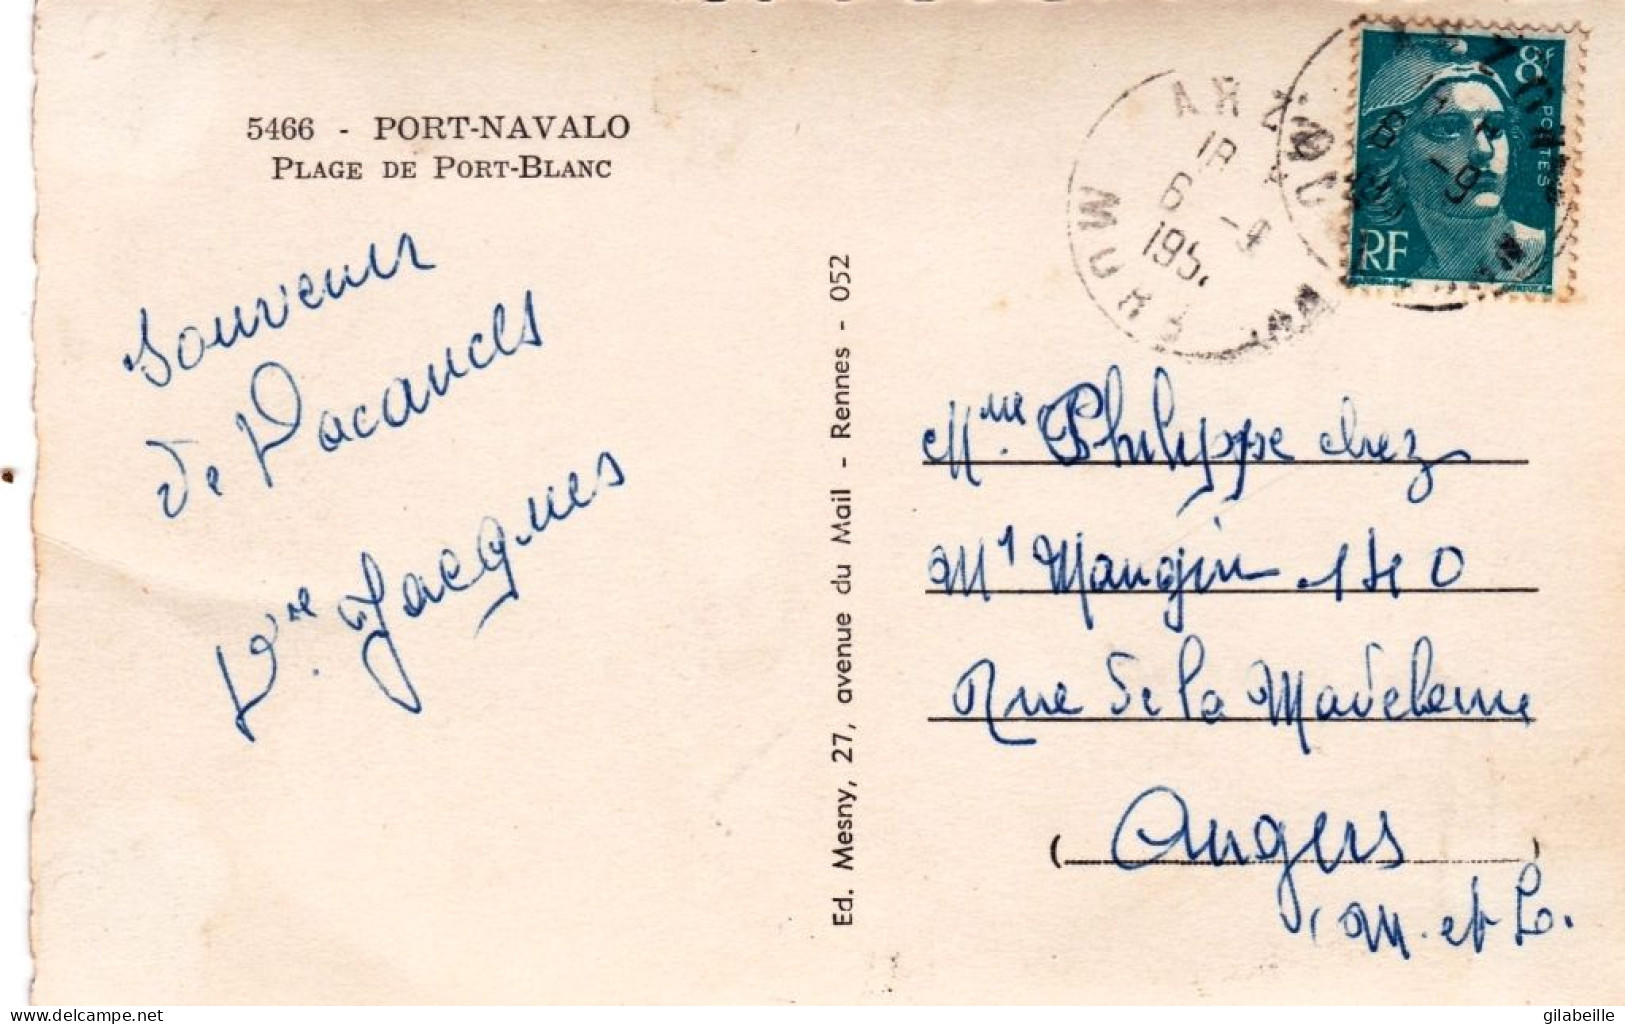 5466 - PORT-NAVALO
PLAGE DE PORT-BLANC
Souvenir
de Vacances
Vve Jacques
Ed. Mesny, 27, avenue du Mail - Rennes - 052
ARZON
18
6 - 9
195
8F
POSTES
RF
Mme Philippe chez
Mr Mangin 140
Rue de la Madeleine
( Angers )
(M. et L.
www.delcampe.net
gilabeille